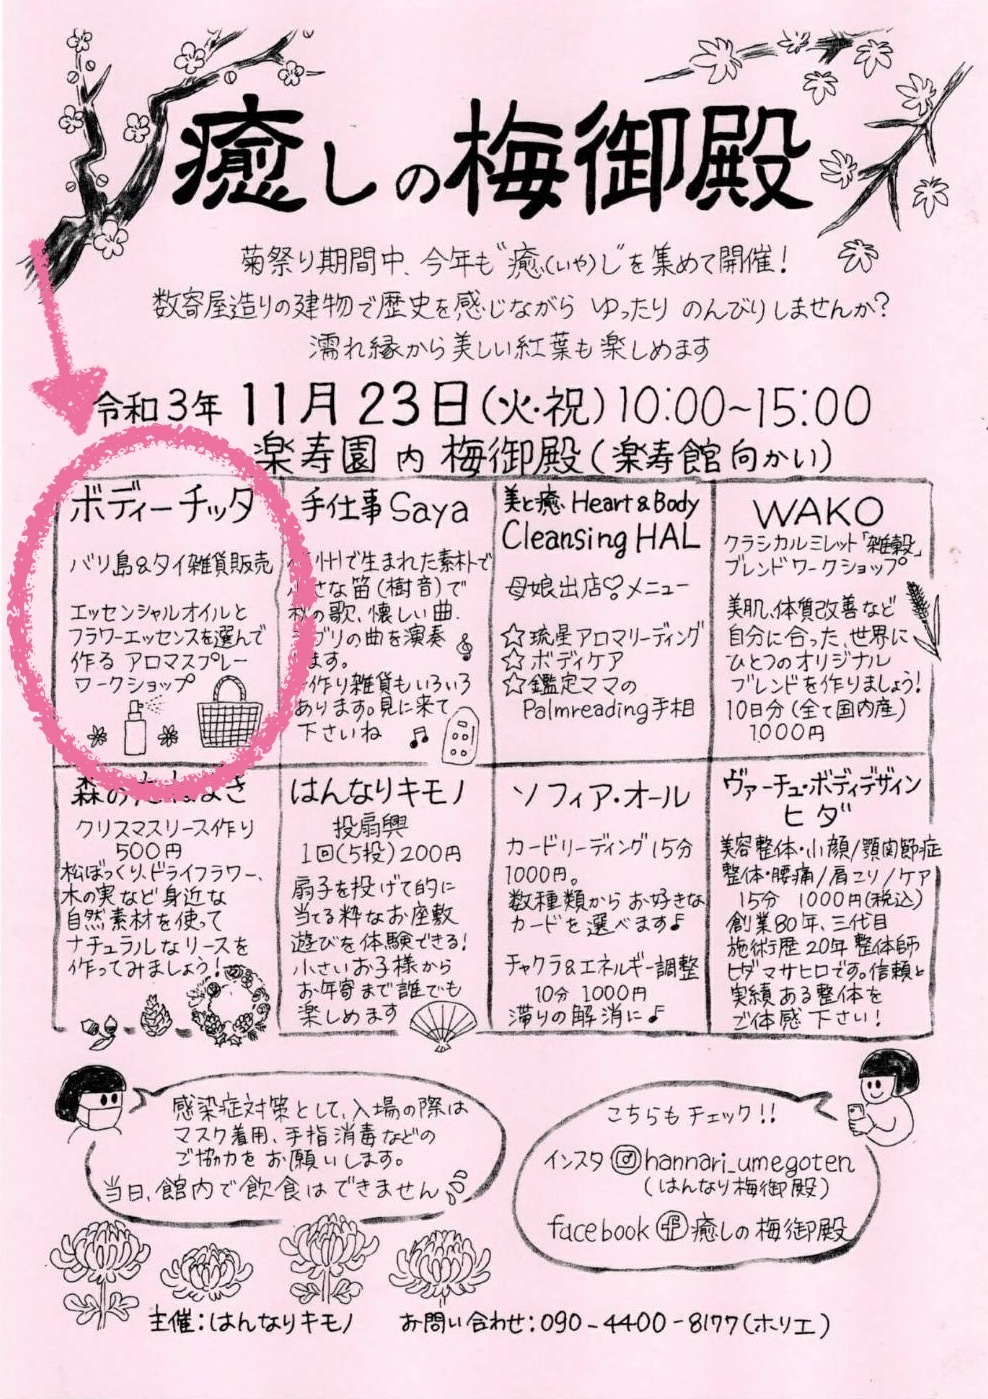 癒しの梅御殿
菊祭り期間中、今年も"癒(いや)し"を集めて開催！
数寄屋造りの建物で歴史を感じながら ゆったり のんびりしませんか？
濡れ縁から美しい紅葉も楽しめます
令和3年 11月23日(火・祝)10:00~15:00
楽寿園内 梅御殿(楽寿館向かい)
ボディーチッタ
バリ島&タイ雑貨販売
エッセンシャルオイルと
フラワーエッセンスを選んで
作る アロマスプレー
ワークショップ
手仕事Saya
州で生まれた素朴で
さな笛(樹音)で
の歌、懐しい曲、
ブリの曲を演奏
ます。
作り雑貨もいろいろ
あります。見に来て
下さいね
美と癒 Heart&Body
Cleansing HAL
母娘出店♡メニュー
☆琉星アロマリーディング
☆ボディケア
☆鑑定ママの
Palmreading手相
WAKO
クラシカルミレット「雑穀」
ブレンドワークショップ
美肌、体質改善など
自分に合った、世界に
ひとつのオリジナル
ブレンドを作りましょう！
10日分(全て国内産)
1000円
森の
クリスマスリース作り
500円
松ぼっくり、ドライフラワー、
木の実など身近な
自然素材を使って
ナチュラルなリースを
作ってみましょう！
はんなりキモノ
投扇興
1回(5投)200円
扇子を投げて的に
当てる粋なお座敷
遊びを体験できる！
小さいお子様から
お年寄まで誰でも
楽しめます
ソフィア・オール
カードリーディング15分
1000円。
数種類からお好きな
カードを選べます♪
チャクラ&エネルギー調整
10分 1000円
滞りの解消に♪
ヴァーチュ・ボディデザイン
ヒダ
美容整体・小顔/顎関節症
整体・腰痛/肩こり/ケア
15分 1000円(税込)
創業80年、三代目
施術歴20年整体師
ヒダマサヒロです。信頼と
実績ある整体を
ご体感下さい！
感染症対策として、入場の際は
マスク着用、手指消毒などの
ご協力をお願いします。
当日、館内で飲食はできません
こちらもチェック！！
インスタ hannari_umegoten
(はんなり梅御殿)
facebook 癒しの梅御殿
主催：はんなりキモノ お問い合わせ：090-4400-8177(ホリエ)